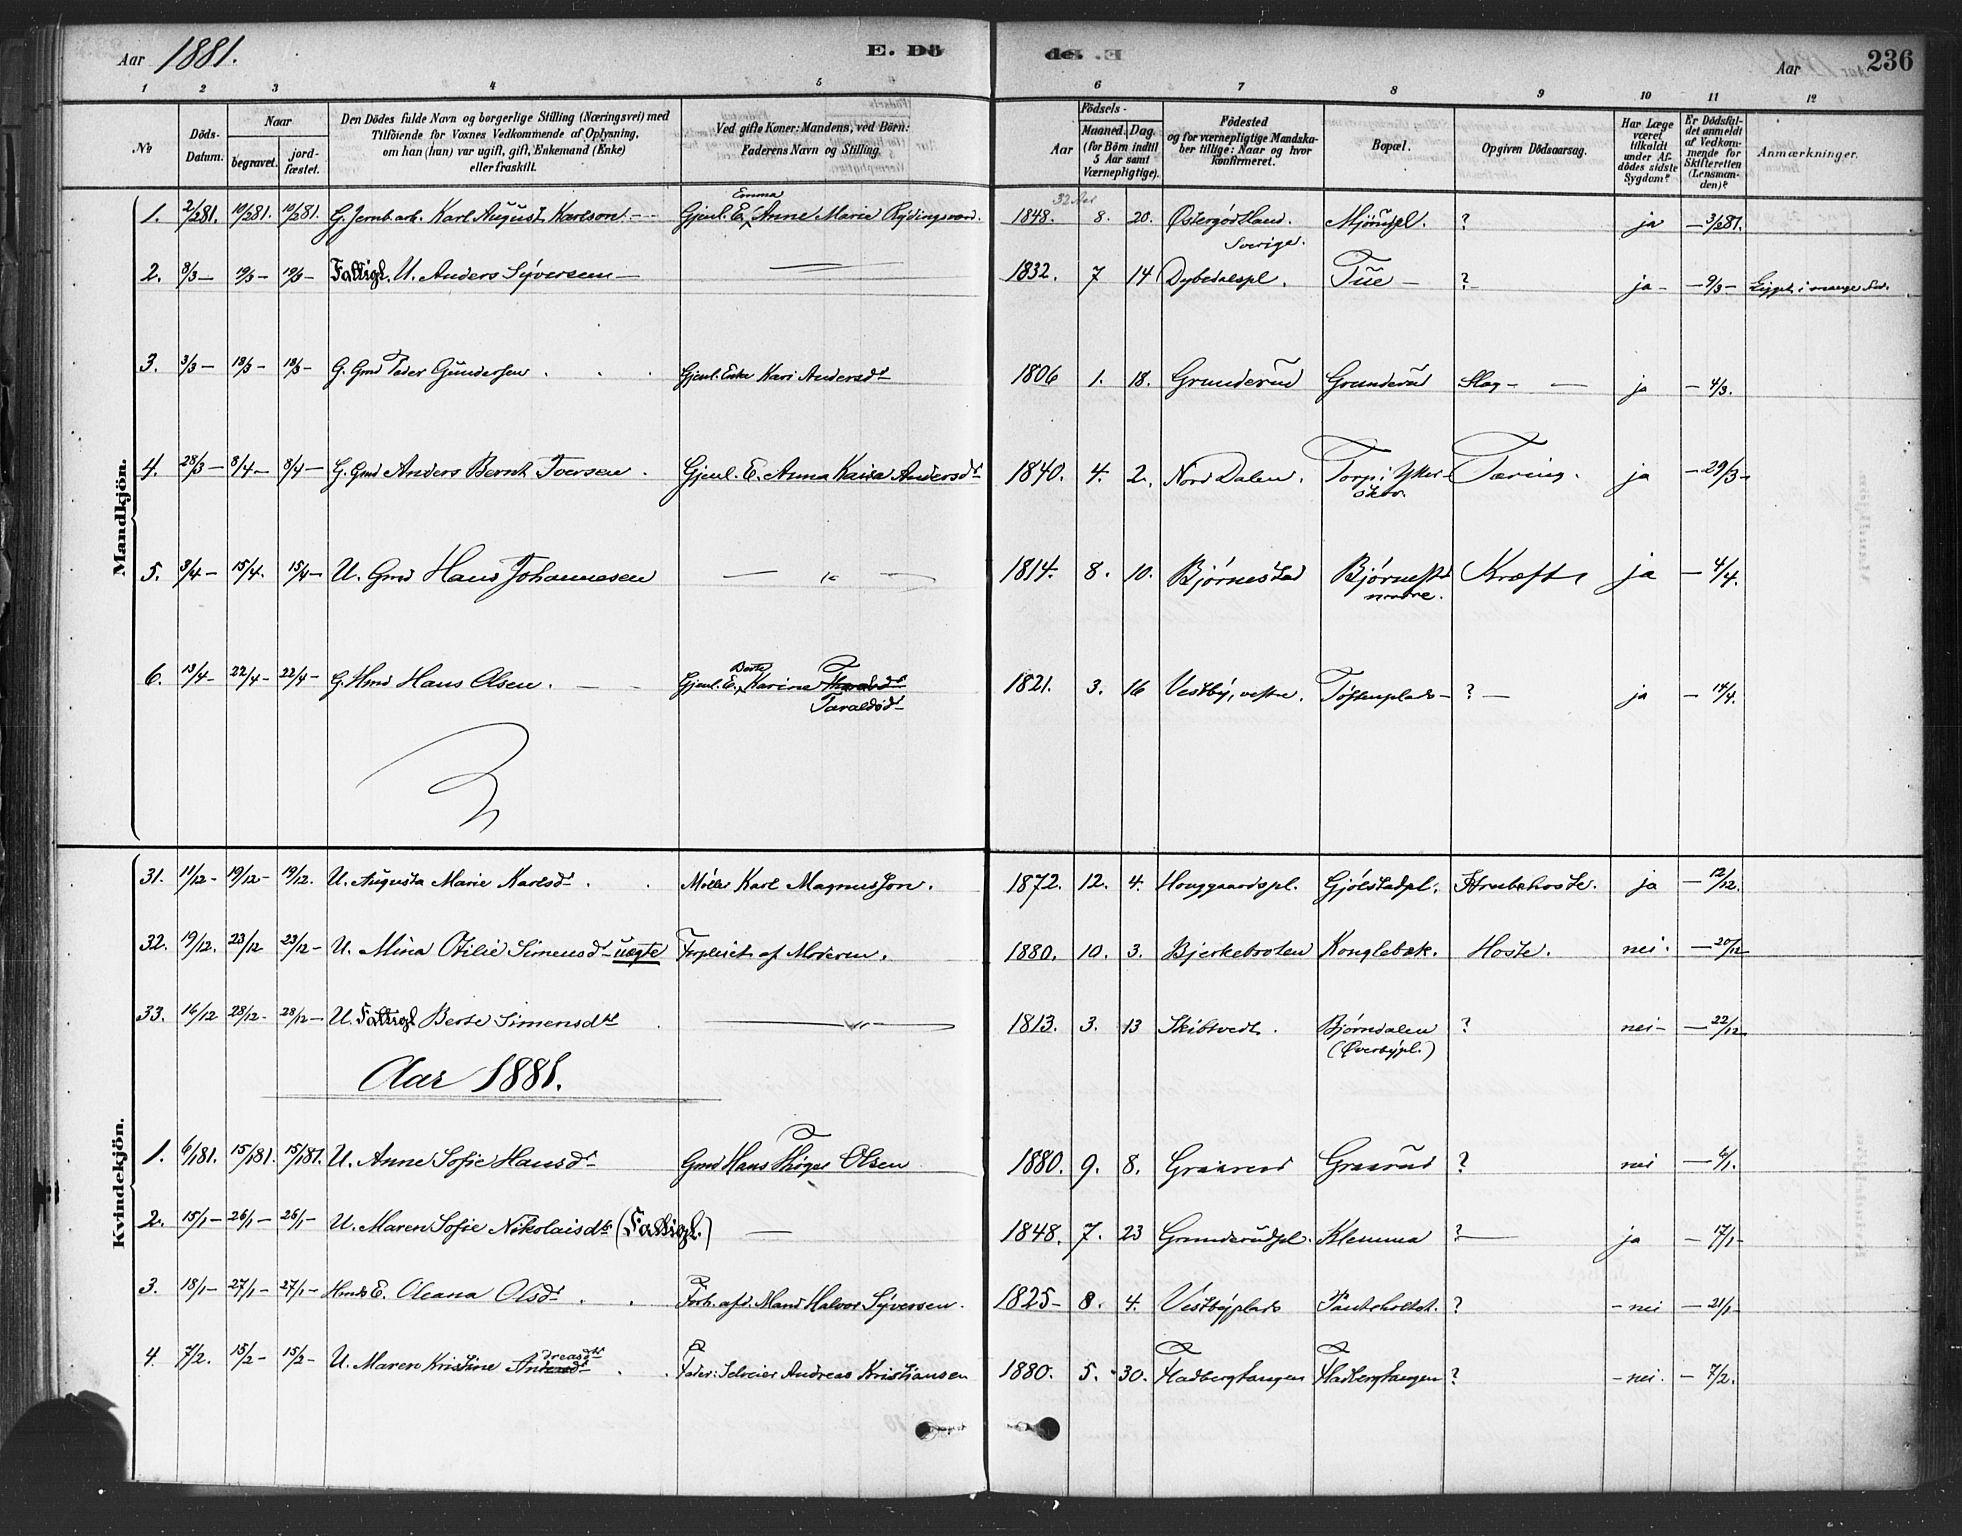 Aar 1881. E. Dö de. E Aar 236
1 2 3 4 5 6 7 8 9 10 11 12
No
Döds-Datum.
Naar
begravet.
jord-fæstet.
Den Dödes fulde Navn og borgerlige Stilling (Næringsvei) med
Tilföiende for Voxnes Vedkommende af Oplysning,
om han (hun) var ugift, gift, Enkemand (Enke)
eller fraskilt.
Ved gifte Koner: Mandens, ved Börn:
Faderens Navn og Stilling.
Födsels-
Aar
Maaned. Dag.
(for Börn indtil
5 Aar samt
Værnepligtige).
Födested
og for værnepligtige Mandska-
ber tillige: Naar og hvor
konfirmeret.
Bopæl.
Opgiven Dödsaarsag.
Har Læge
været
tilkaldt
under Af-
dödes sidste
Sygdom?
Er Dödsfal-
det anmeldt
af Vedkom-
mende for
Skifteretten
(Lensman-
den)?
Anmærkninger.
Mandkjön.
Emma
32 Aar
1. 2/2 81. 10/2 81. 10/2 81. G. Jernb.arb. Karl August Karlson. Gjenl. E. Anne Marie Rydingsvard. 1848. 8. 20. Østergötland. Mjørudpl. ? ja — 3/2 81.
Sverige.
2. 8/3 — 19/3 — 19/3 — Fattigl. U. Anders Syversen — 1832. 7 14 Dybedalspl. Tue — ? ja — 9/3 — Ligget i mange
3. 3/3 — 18/3 — 18/3 — G. Gmd Peder Gundersen . . . Gjenl. Enke Kari Andersdt 1806 1. 18. Grunderud Grunderud Slag — ja — 4/3.
4. 28/3 — 8/4 — 8/4 — G. Gmd Anders Bernt Iversen . Gjenl. E. Anna Kaisa Andersdt 1840. 4. 2. Nord Dalen. Torp i Ytter- Tæring. ja — 29/3 —
skov
5. 3/4 — 15/4. 15/4 — U. Gmd Hans Johannesen — " — 1814. 8. 10. Bjørnestad Bjørnestd Kræft ja — 4/4.
nordre.
Berte
6. 13/4 — 22/4 — 22/4 — G. Hmd Hans Olsen. Gjenl. E. Karine 1821. 3. 16 Vestby, vestre. Tøftenplads — ? — ja — 14/4.
Taraldsdt
Kvindekjön.
31. 11/12 - 19/12 - 19/12. U. Augusta Marie Karlsdt . . Møller Karl Magnusson. 1872. 12. 4. Houggaardspl. Gjølstadpl. Strubehoste. ja — 12/12.
32. 19/12. 23/12 23/12 - U. Mina Otilie Simensdt uægte Forpleiet af Moderen. 1880. 10. 3. Bjerkebroten Konglebæk. Hoste. nei. — 20/12
33. 16/12 28/12 - 28/12 — U. Fattigl Berte Simensdtr . — " — 1813. 3. 13 Skibtvedt. Bjørndalen ? nei — — 22/12
(Øverbypl.)
Aar 1881.
1. 6/1 81. 15/1 81. 15/1 81. U. Anne Sofie Hansdt Gmd Hans Olsen 1880. 9. 8. Graarud Graarud ? nei — 6/1.
2. 15/1 — 26/1 — 26/1 — U. Maren Sofie Nikolaisdtr (Fattigl.) — 1848. 7. 23 Grunderudpl. Klemma ? — ja — 17/1 —
3. 18/1 — 27/1 — 27/1 — Hmds E. Oleana Olsdt . . Forh. afd. Mand Halvor Syversen. 1825 — 8. 4. Vestbyplads ? — nei — 21/1 —
dreasdtr
4. 7/2. 15/2 — 15/2 — U. Maren Kristine Andersdt . . Fader: Selveier Andreas Kristiansen 1880. 5. 30. Fladbergtangen Fladbergtangen ? — nei. — 7/2.